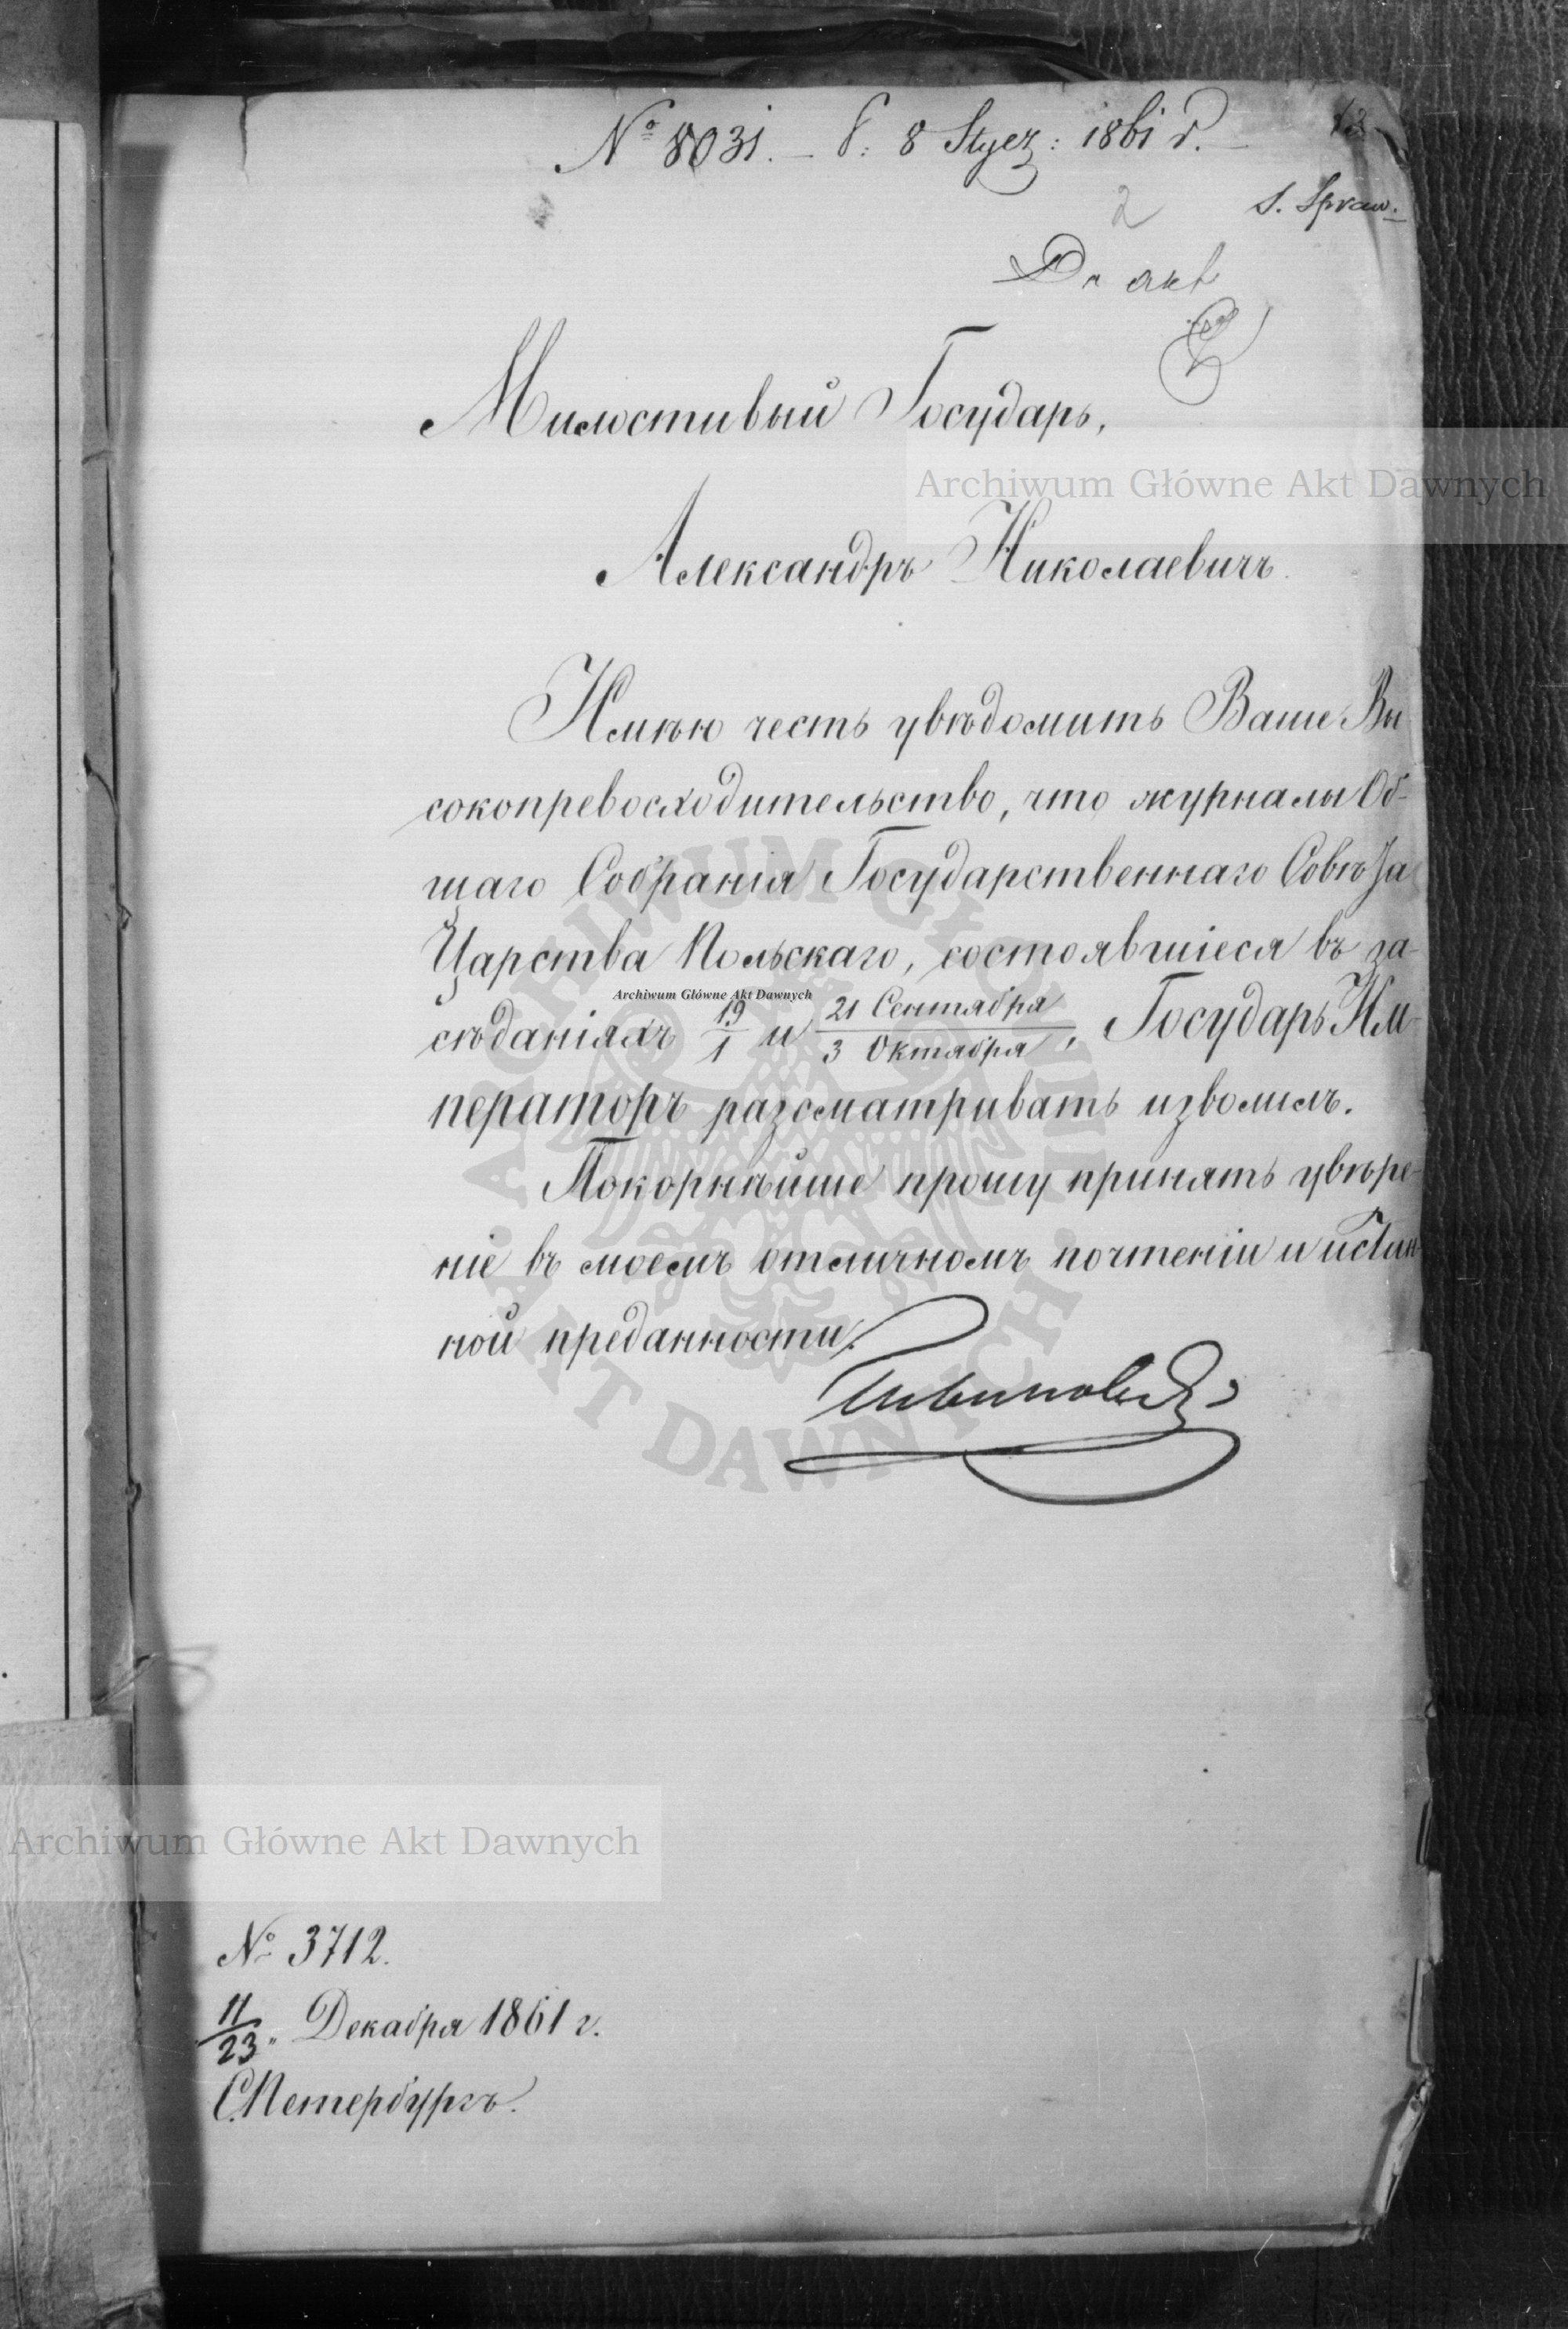 № 8031. — 8 Stycz: 1861 r.
13
2
S. Spraw.
Do akt
Милостивый Государь,
Archiwum Główne Akt Dawnych
Александръ Николаевичъ.
Имѣю честь увѣдомить Ваше Вы
сокопревосходительство, что журналы Об-
щаго Собранія Государственнаго Совѣта
Царства Польскаго, состоявшіеся въ за-
Archiwum Główne Akt Dawnych
сѣданіяхъ 19/1 и 21 Сентября/3 Октября, Государь Им-
ператоръ разсматривать изволилъ.
Покорнѣйше прошу принять увѣре-
ніе въ моемъ отличномъ почтеніи и истин-
ной преданности.
ARCHIWUM GŁÓWNE AKT DAWNYCH
Archiwum Główne Akt Dawnych
№ 3712.
11/23 Декабря 1861 г.
С.Петербургъ.